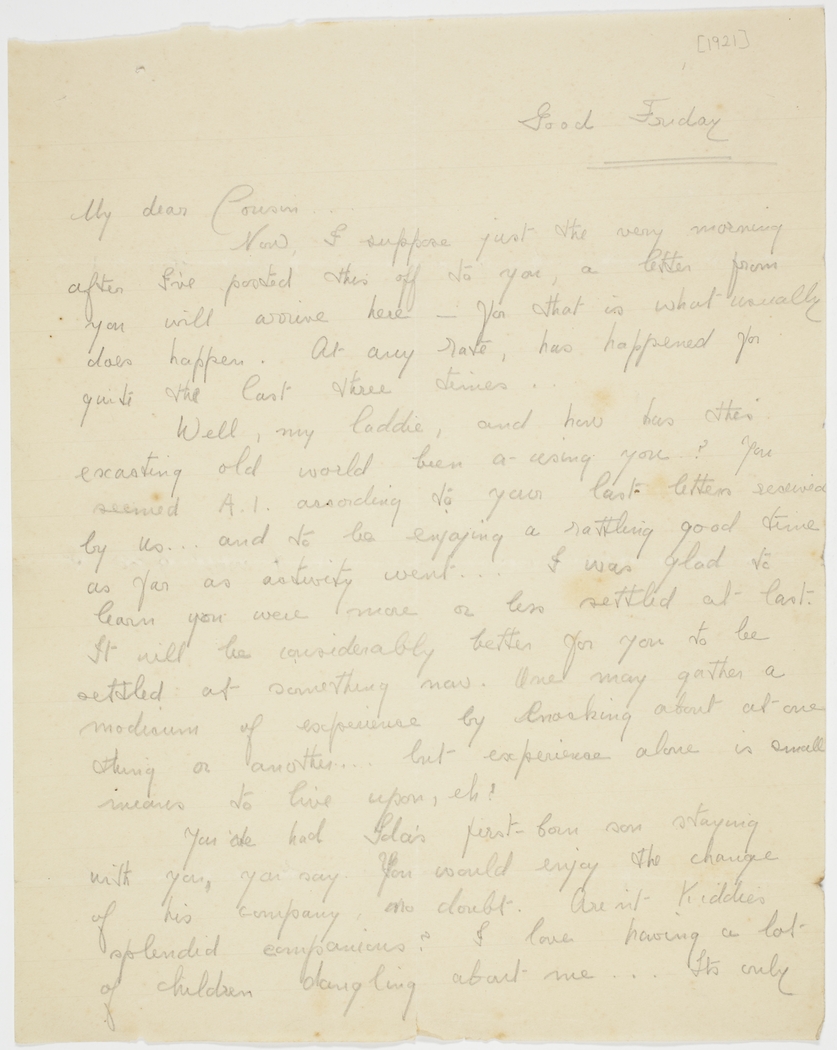 [1921]
Good Friday
My dear Cousin...
Now, I suppose just the very morning
after I've posted this off to you, a letter from
you will arrive here — for that is what usually
does happen. At any rate, has happened for
quite the last three times ..
Well, my laddie, and how has this
exacting old world been a-using you? You
seemed A.1. according to your last letters received
by us... and to be enjoying a rattling good time
as far as activity went.... I was glad to
learn you were more or less settled at last.
It will be considerably better for you to be
settled at something now. One may gather a
modicum of experience by knocking about at one
thing or another.... but experience alone is small
means to live upon, eh?
You've had Ida's first-born son staying
with you, you say. You would enjoy the change
of his company, no doubt. Are'nt Kiddies
splendid companions? I love having a lot
of children dangling about me.... Its only